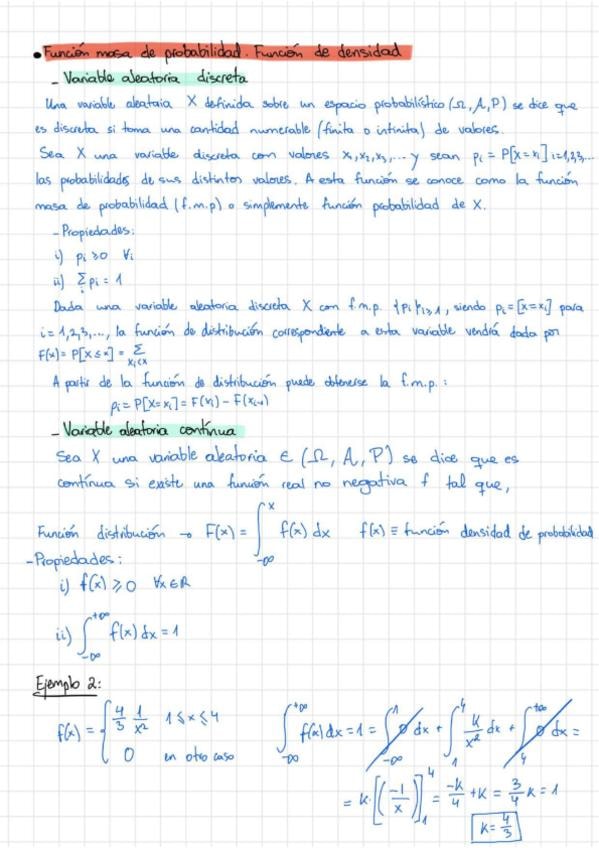 • Función masa de probabilidad. Función de densidad
- Variable aleatoria discreta
Una variable aleataia X definida sobre un espacio probabilístico (Ω, A, P) se dice que
es discreta si toma una cantidad numerable (finita o infinita) de valores.
Sea X una variable discreta con valores x₁, x₂, x₃, ... y sean pᵢ = P[X = xᵢ] i=1,2,3,...
las probabilidades de sus distintos valores. A esta función se conoce como la función
masa de probabilidad (f.m.p) o simplemente función probabilidad de X.
- Propiedades:
i) pᵢ ≥ 0 ∀i
ii) Σᵢ pᵢ = 1
Dada una variable aleatoria discreta X con f.m.p. {pᵢ}ᵢ≥₁, siendo pᵢ = [X = xᵢ] para
i = 1,2,3,..., la función de distribución correspondiente a esta variable vendrá dada por
F(x) = P[X ≤ x] = Σ xᵢ<x
A partir de la función de distribución puede obtenerse la f.m.p. :
pᵢ = P[X = xᵢ] = F(xᵢ) - F(xᵢ₋₁)
- Variable aleatoria contínua
Sea X una variable aleatoria ∈ (Ω, A, P) se dice que es
contínua si existe una función real no negativa f tal que,
Función distribución → F(x) = ∫_{-∞}^{x} f(x) dx f(x) ≡ función densidad de probabilidad
- Propiedades:
i) f(x) ≥ 0 ∀x ∈ ℝ
ii) ∫_{-∞}^{+∞} f(x) dx = 1
Ejemplo 2:
f(x) = { 4/3 1/x² 1 ≤ x ≤ 4
0 en otro caso
∫_{-∞}^{+∞} f(x) dx = 1 = ∫_{-∞}^{1} 0 dx + ∫_{1}^{4} k/x² dx + ∫_{4}^{+∞} 0 dx =
= k · [(-1/x)]₁⁴ = -k/4 + k = 3/4 k = 1
k = 4/3